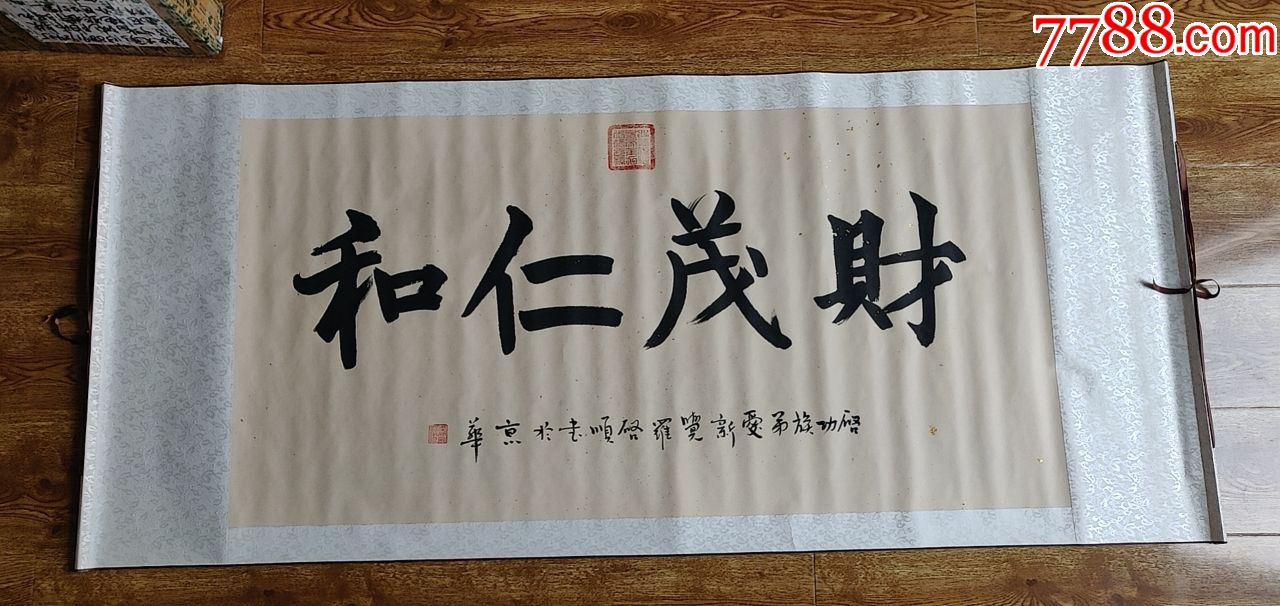 7788.com
財茂仁和
啓功族弟愛新覺羅啓順書於京華